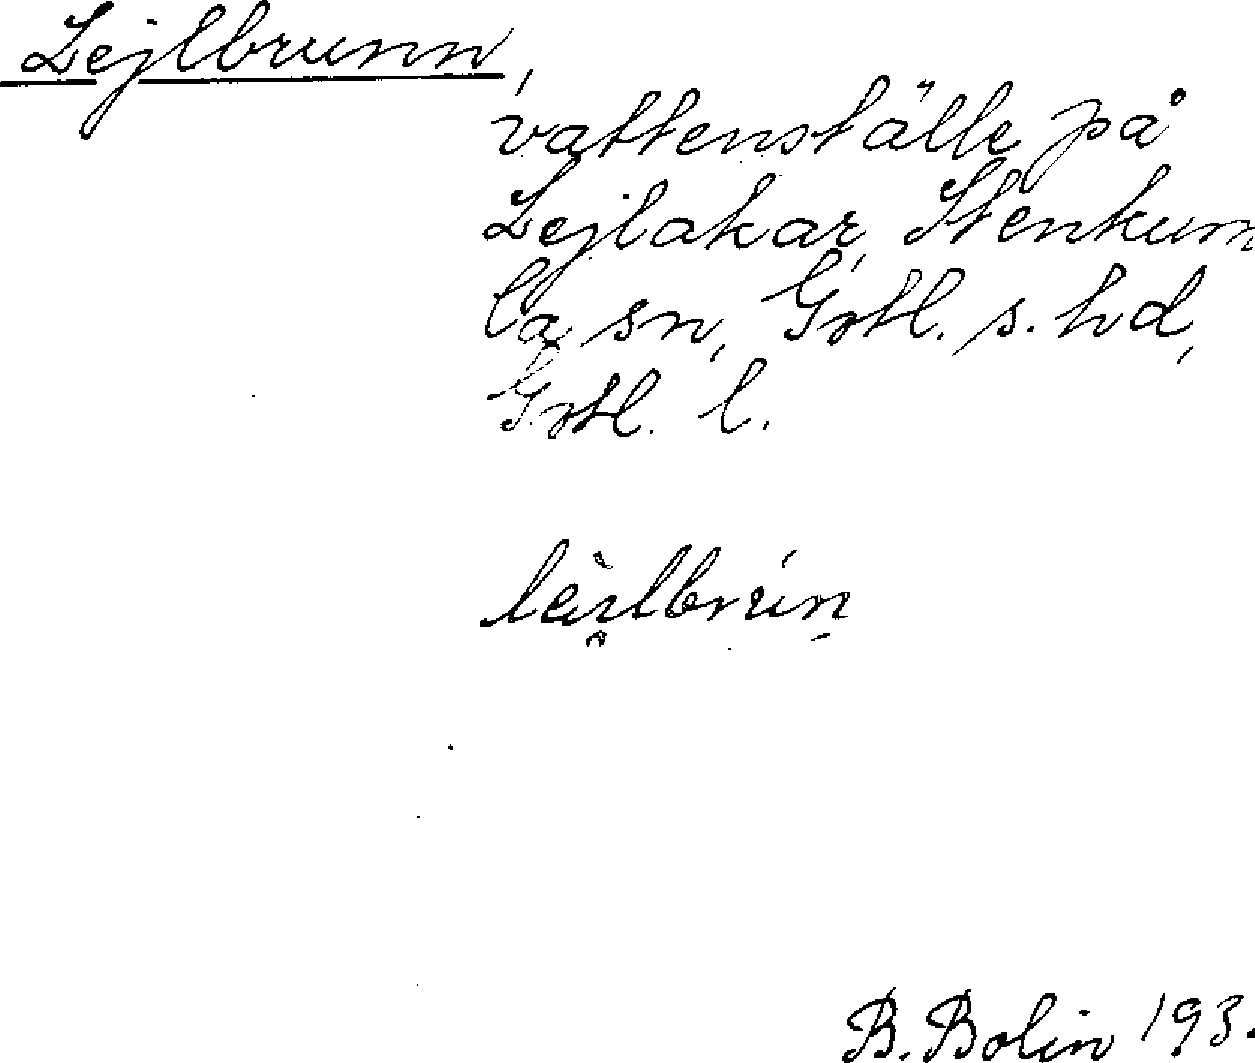 Lejlbrunn,
vattenställe på
Lejlakar, Stenkum
la sn, Gotl. s. hd,
Gotl. l.
B. Bolin 193.